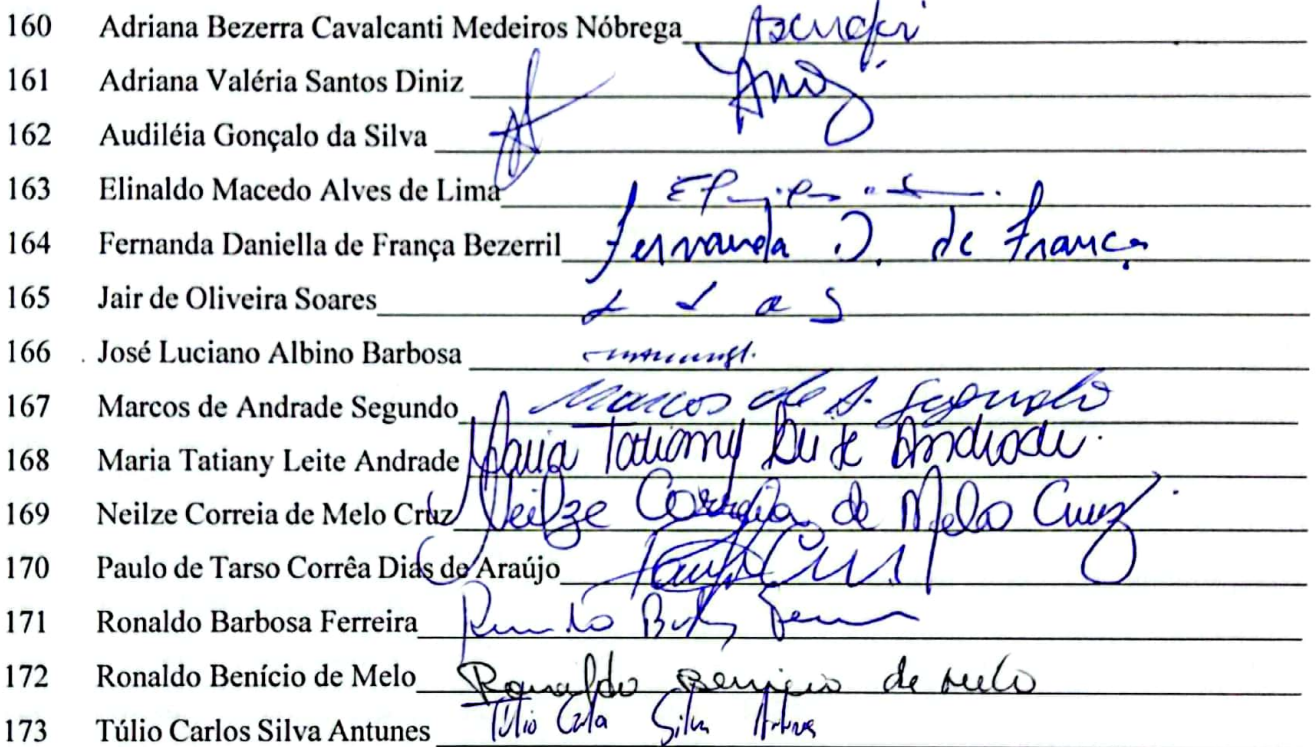 160 Adriana Bezerra Cavalcanti Medeiros Nóbrega
161 Adriana Valéria Santos Diniz
162 Audiléia Gonçalo da Silva
163 Elinaldo Macedo Alves de Lima
164 Fernanda Daniella de França Bezerril Fernanda D. de França
165 Jair de Oliveira Soares
166 José Luciano Albino Barbosa
167 Marcos de Andrade Segundo Marcos de A. Segundo
168 Maria Tatiany Leite Andrade Maria Tatiany Leite Andrade.
169 Neilze Correia de Melo Cruz Neilze Correia de Melo Cruz
170 Paulo de Tarso Corrêa Dias de Araújo
171 Ronaldo Barbosa Ferreira
172 Ronaldo Benício de Melo Ronaldo Benicio de Melo
173 Túlio Carlos Silva Antunes Túlio Silva Antunes